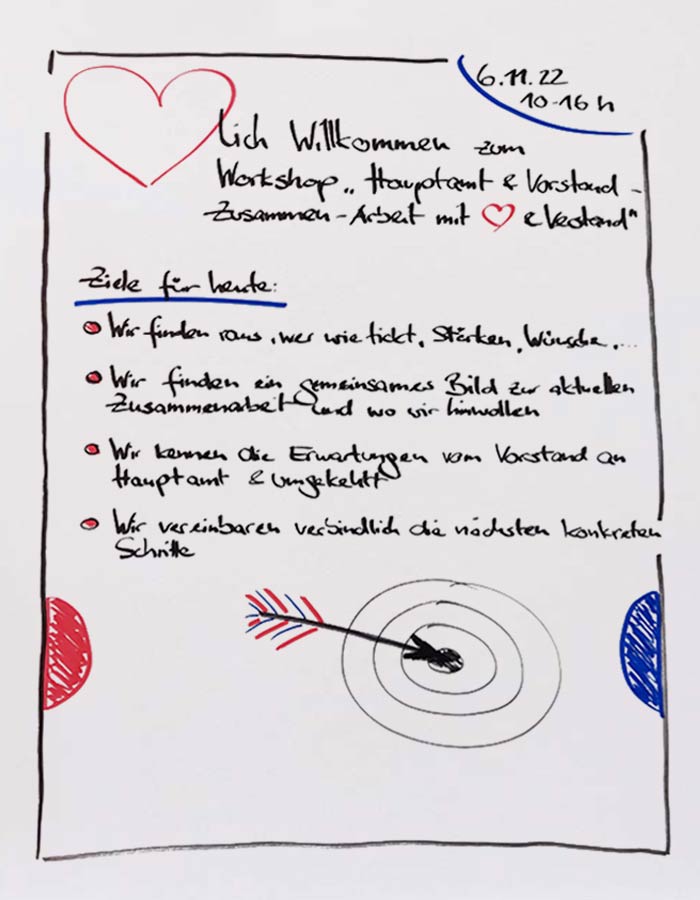 6.11.22
10-16 h
lich Willkommen zum
Workshop „Hauptamt & Vorstand -
Zusammen-Arbeit mit ♡ & Verstand"
Ziele für heute:
Wir finden raus, wer wie tickt, Stärken, Wünsche,...
Wir finden ein gemeinsames Bild zur aktuellen
Zusammenarbeit und wo wir hinwollen
Wir kennen die Erwartungen vom Vorstand an
Hauptamt & umgekehrt
Wir vereinbaren verbindlich die nächsten konkreten
Schritte